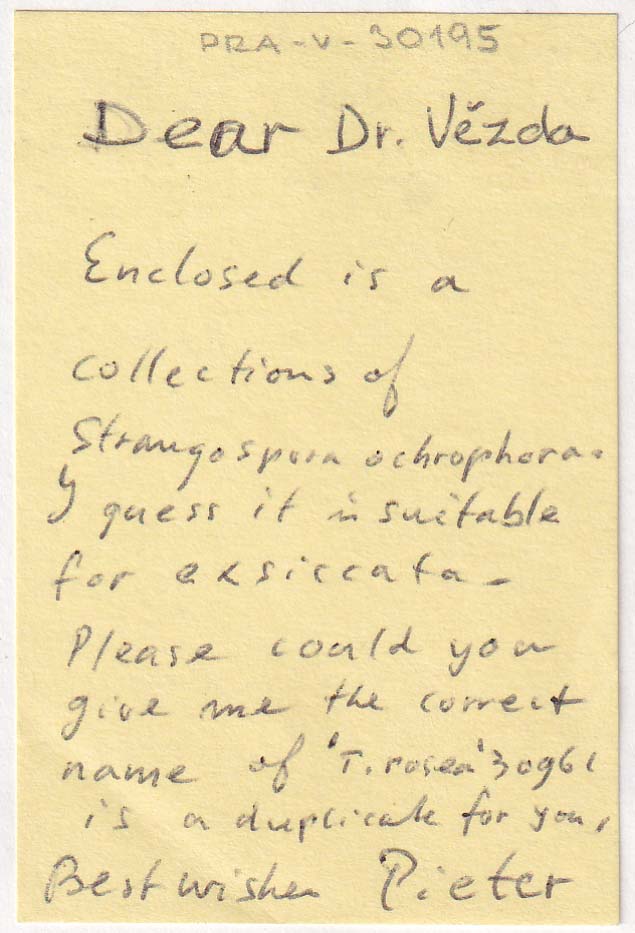 PRA-V-30195
Dear Dr. Vězda
Enclosed is a
collections of
Strangospora ochrophora.
I guess it is suitable
for exsiccata.
Please could you
give me the correct
name of 'T. rosea' 30961
is a duplicate for you,
Best wishes Pieter